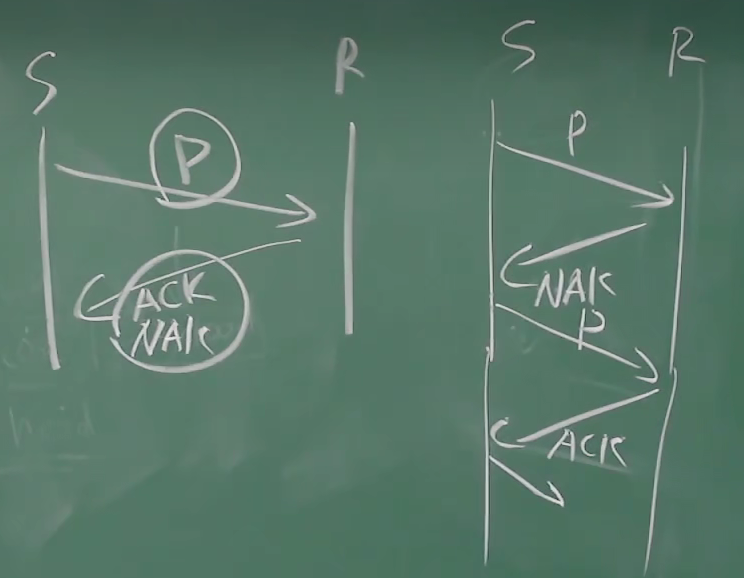 S R
P
ACK
NAK
S R
P
NAK
P
ACK